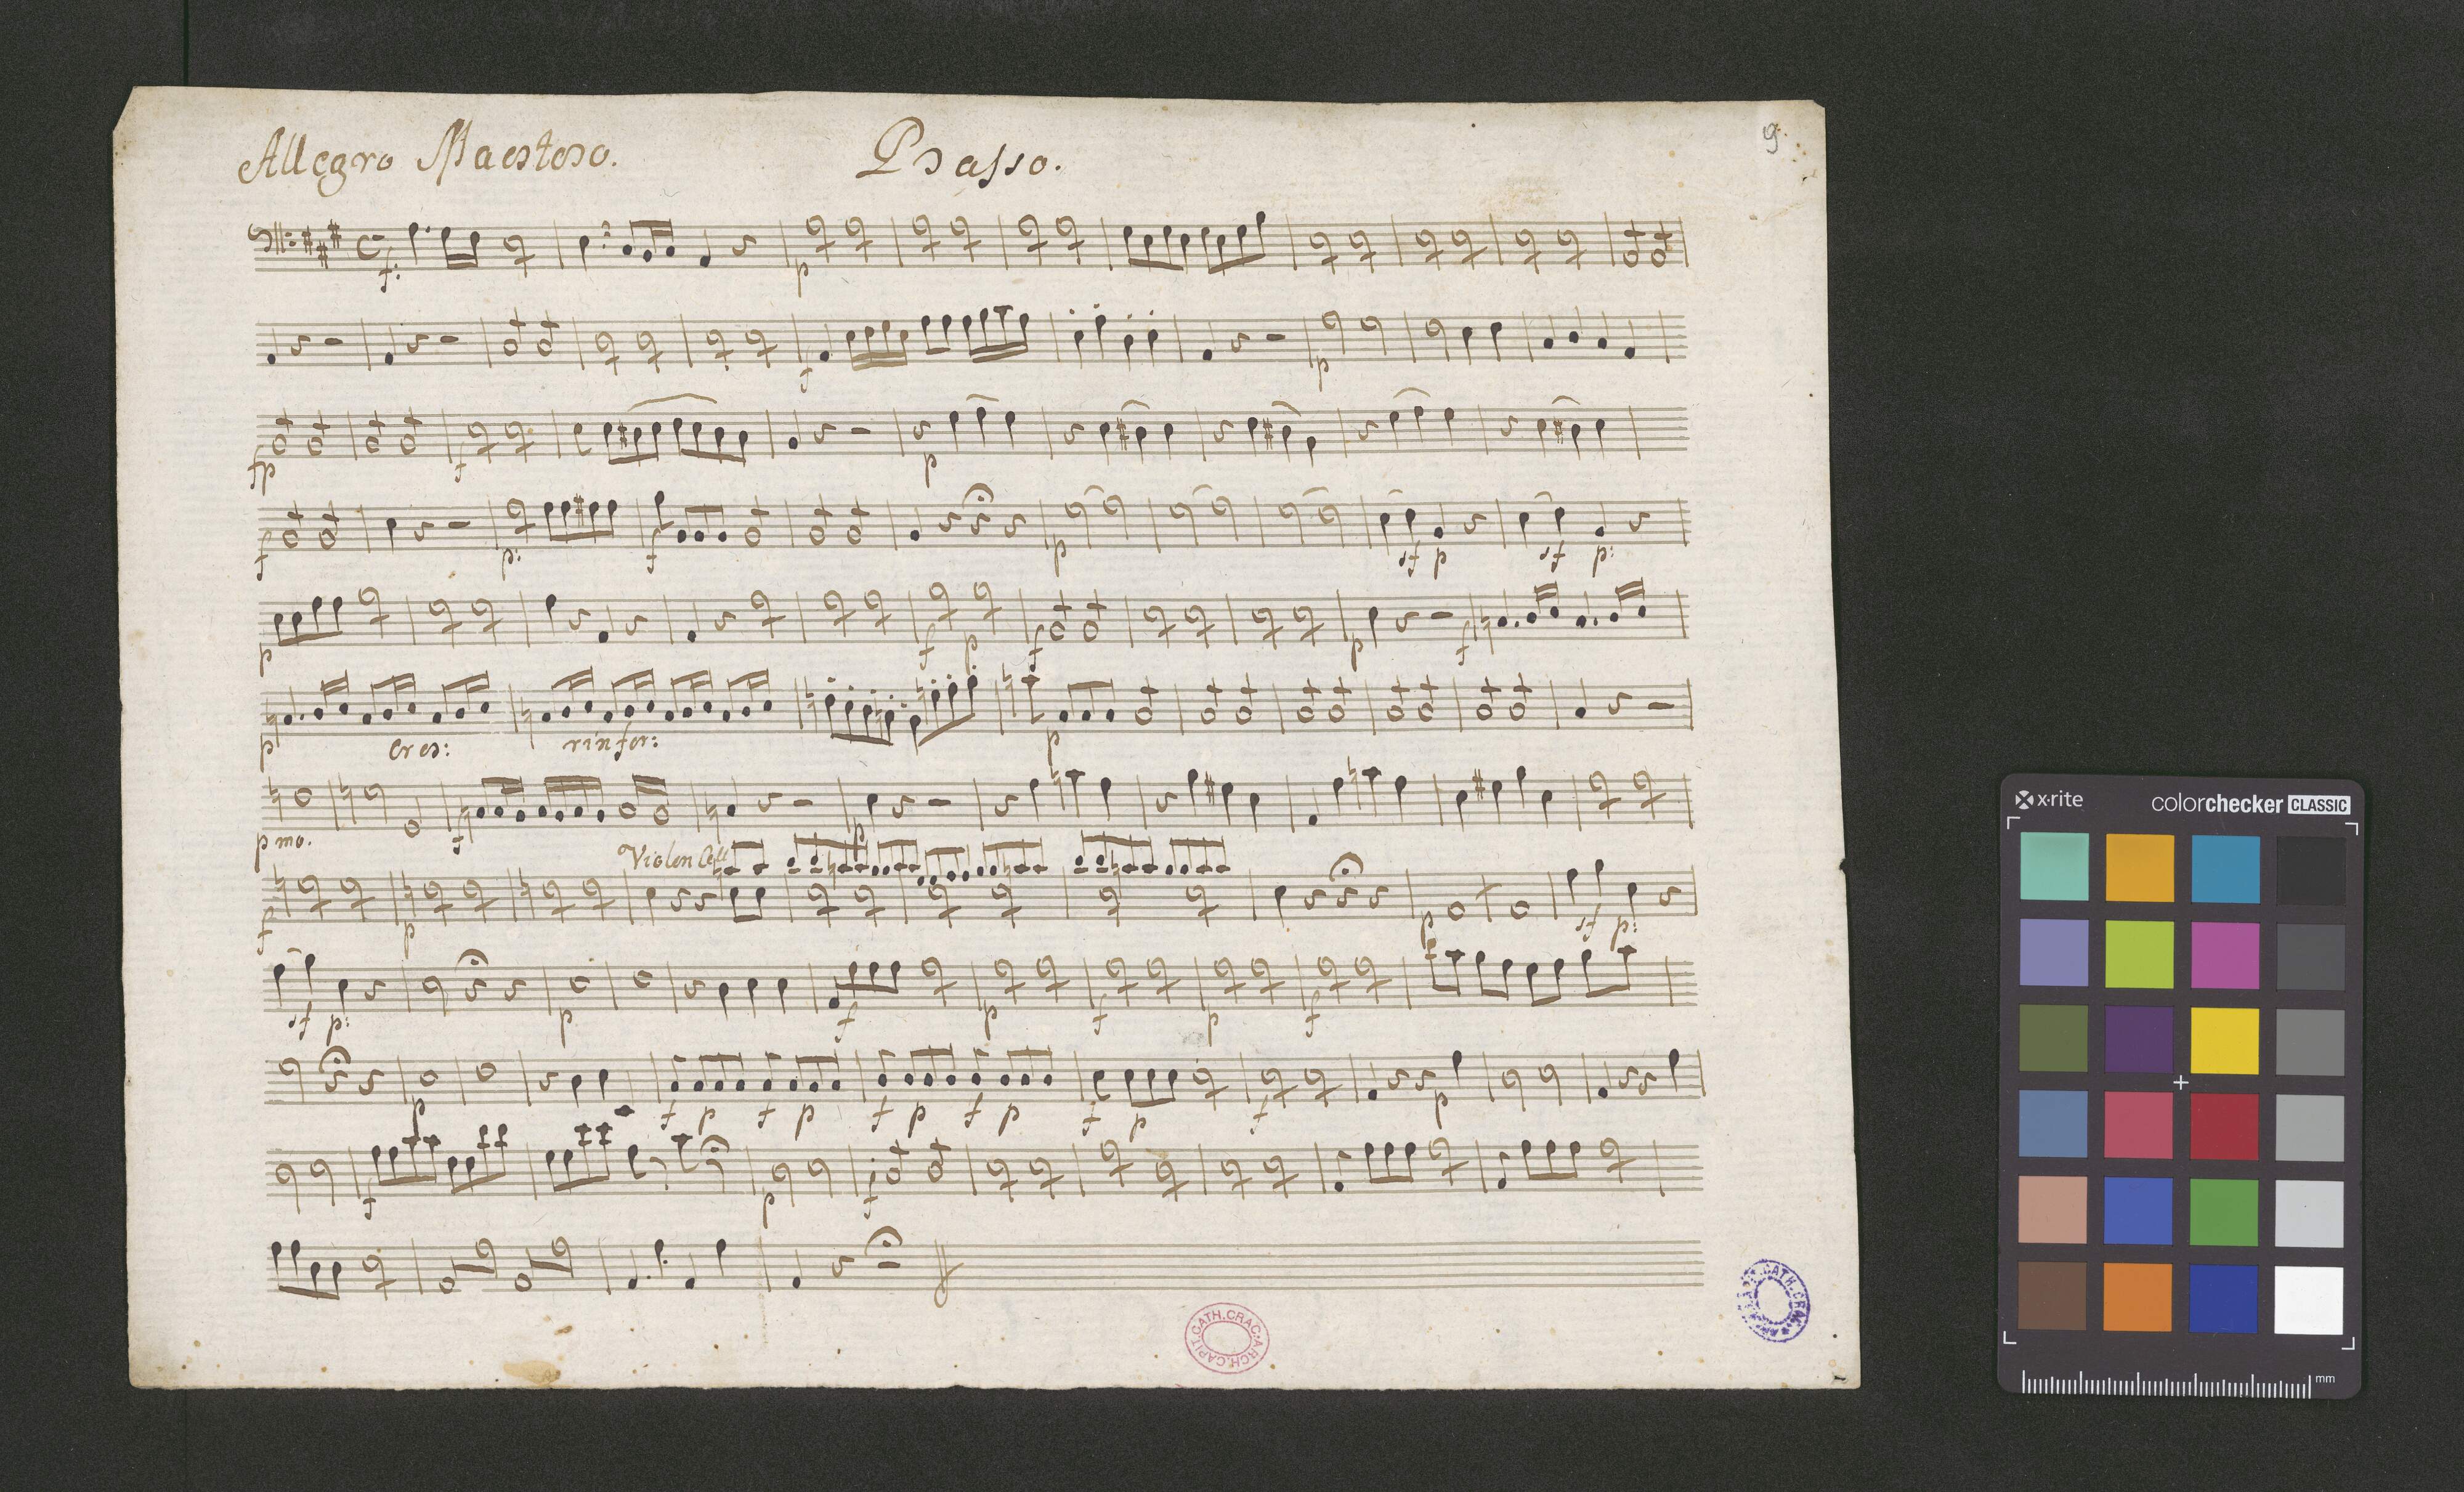 Allegro Maestoso. Basso. 9.
f. p
f p
fp f p
f p: f p sf p sf p:
p f p f p f
p cres: rinfor: p
pmo. f p
Violon Cell
f p p sf p:
sf p: p f p f p f
p f p f p f p f p f p f p
f p f
CATH.CRAC.ARCH.CAPIT.
CATH.CRA
x·rite colorchecker CLASSIC
mm